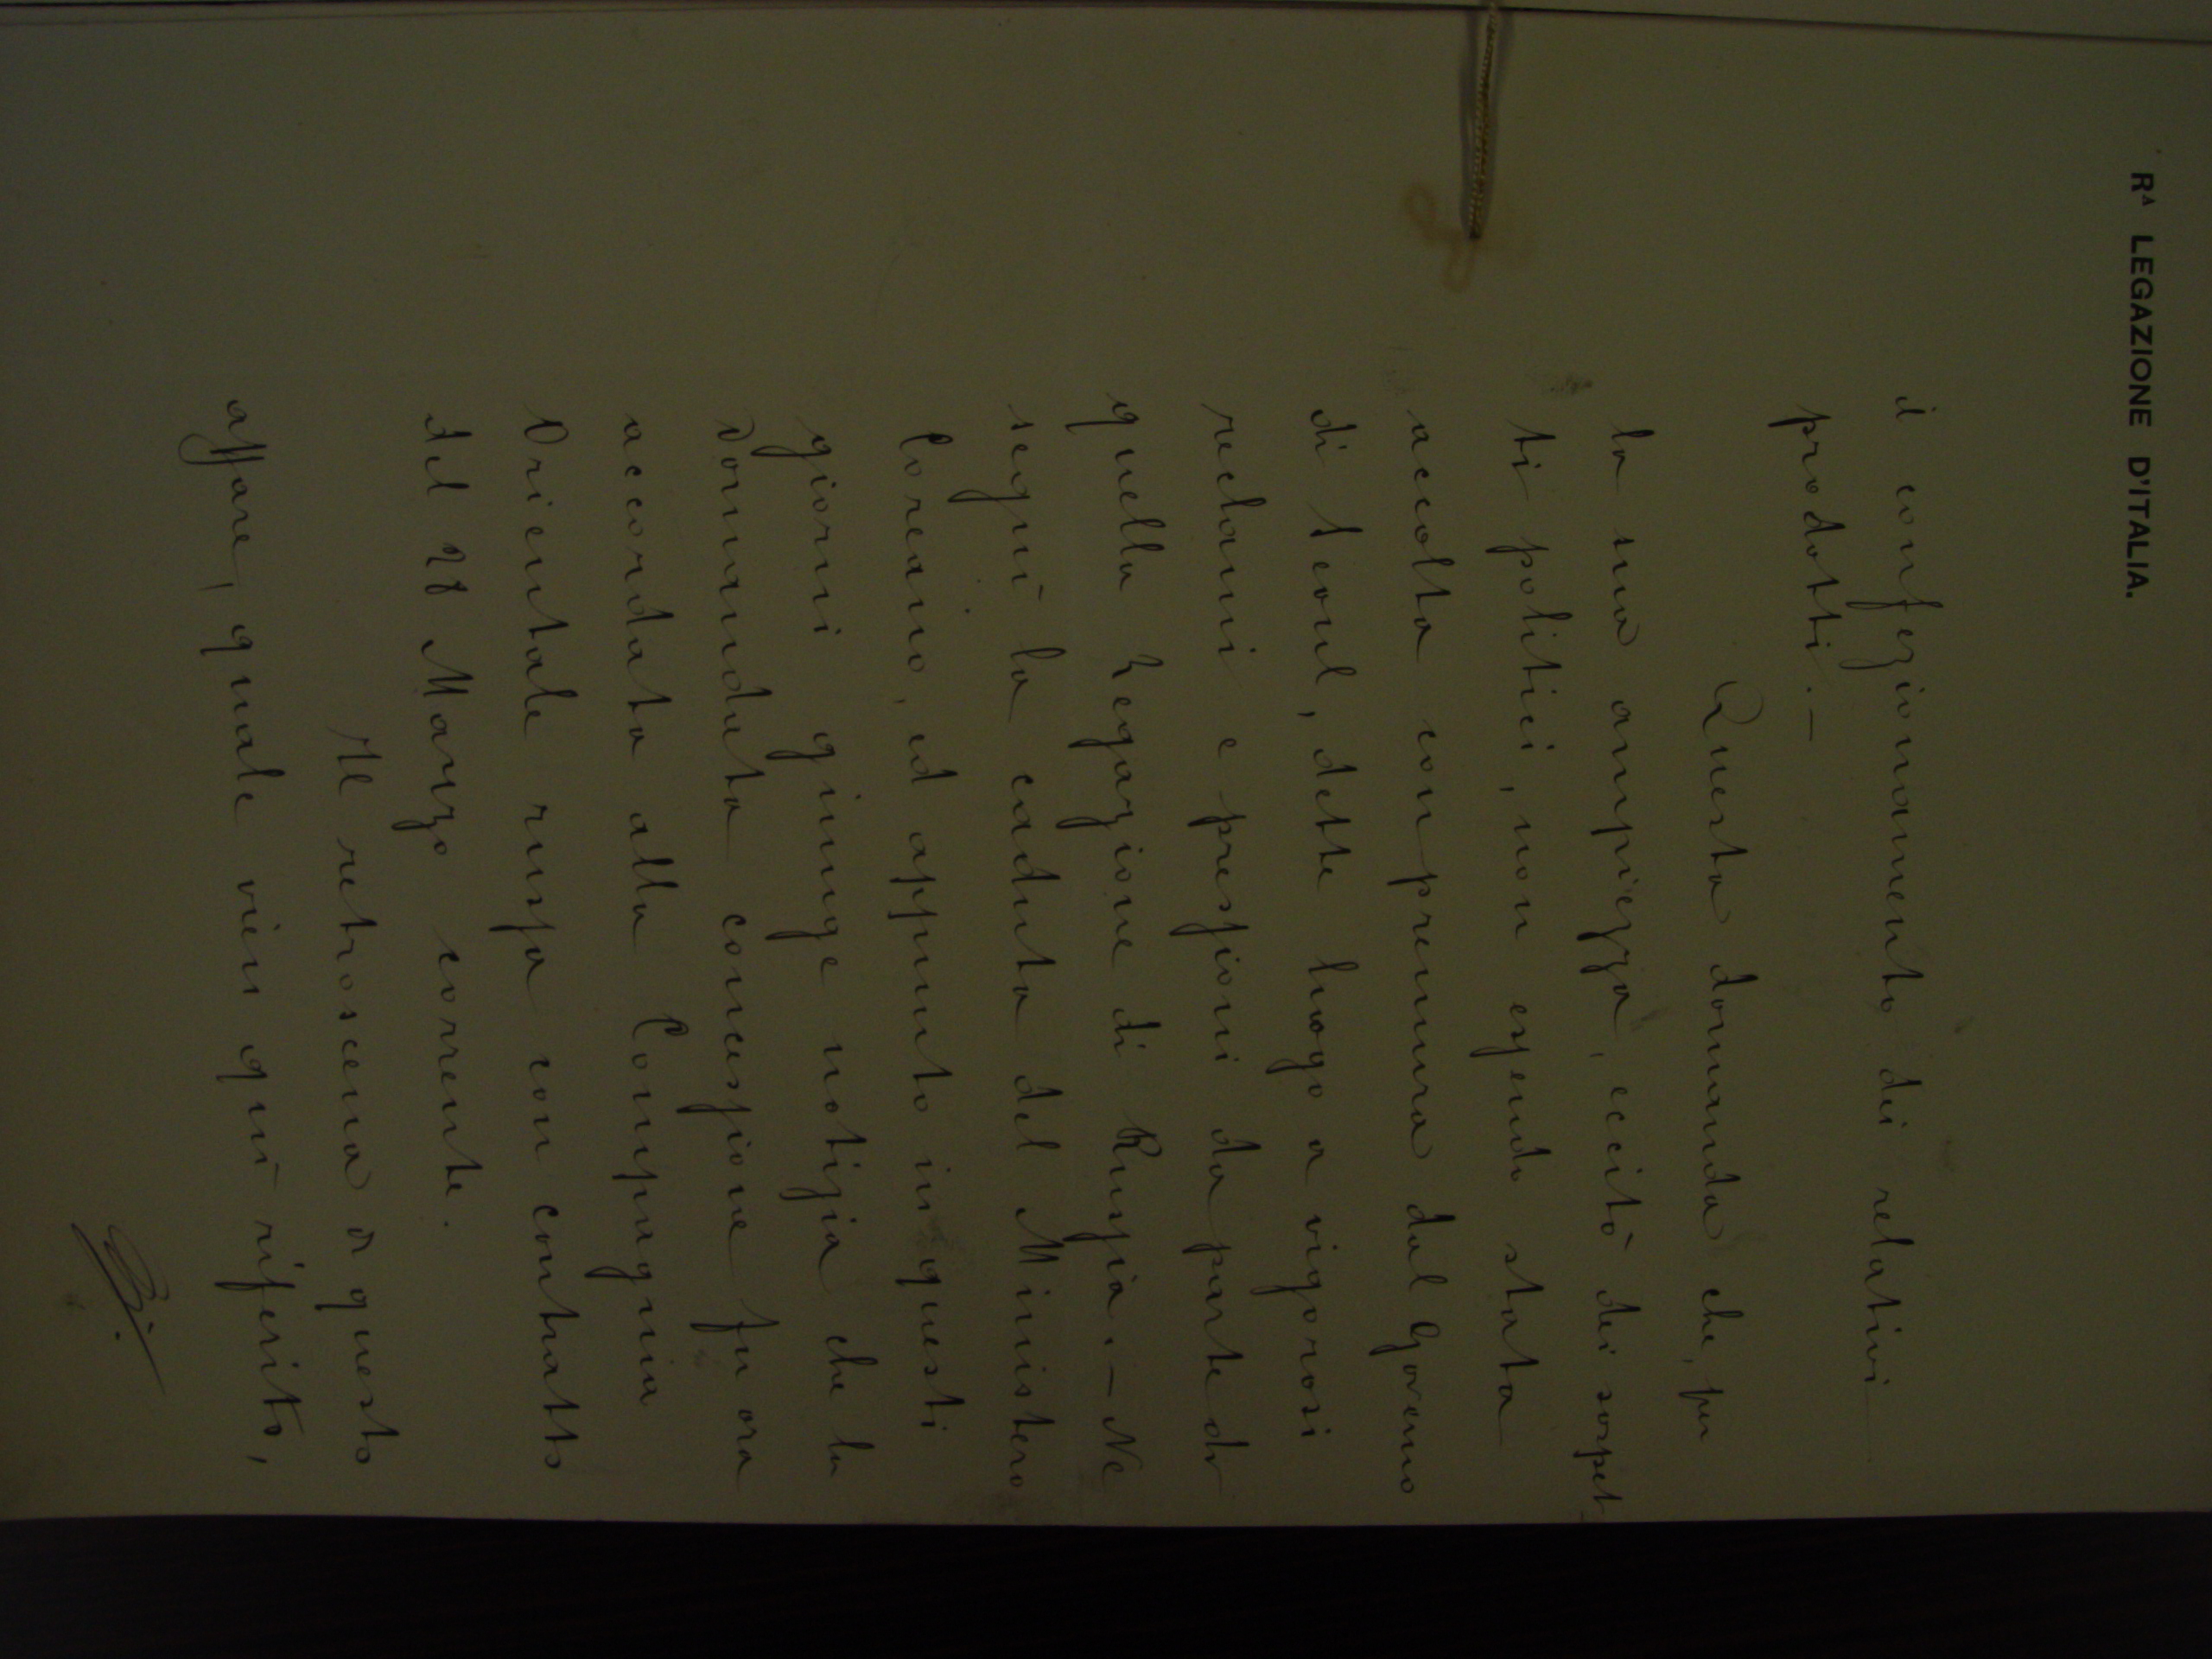 Rᴬ LEGAZIONE D'ITALIA.
il confezionamento dei relativi
prodotti. —
Questa domanda che, per
la sua ampiezza, eccitò dei sospet
ti politici, non essendo stata
accolta con premura dal Governo
di Seoul, dette luogo a vigorosi
reclami e pressioni da parte di
quella Legazione di Russia. — Ne
seguì la caduta del Ministero
Coreano, ed appunto in questi
giorni giunge notizia che la
domandata concessione fu ora
accordata alla Compagnia
Orientale russa con contratto
del 28 Marzo corrente.
Il retroscena di questo
affare, quale vien quì riferito,